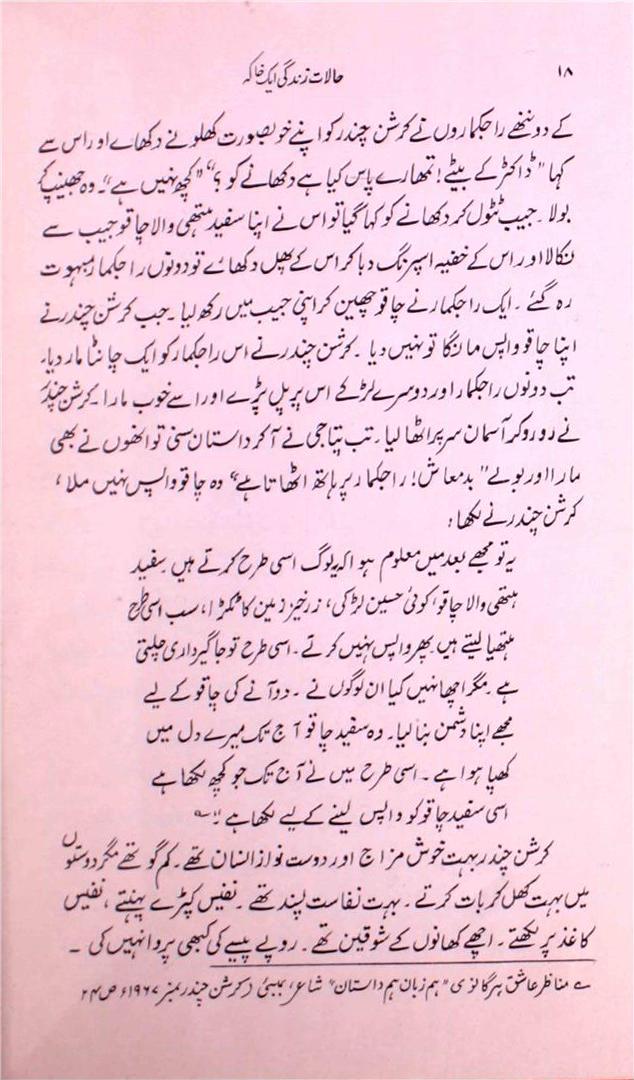 ۱۸ حالات زندگی ایک خاکہ
کے دو ننھے راجکماروں نے کرشن چندر کو اپنے خوبصورت کھلونے دکھاے اور اس سے
کہا "ڈاکٹر کے بیٹے! تمھارے پاس کیا ہے دکھانے کو؟" "کچھ نہیں ہے"۔ وہ جھینپ کر
بولا۔ جیب ٹٹول کر دکھانے کو کہا گیا تو اس نے اپنا سفید ہتھی والا چاقو جیب سے
نکالا اور اس کے خفیہ اسپرنگ دبا کر اس کے پھل دکھاے تو دونوں راجکمار مبہوت
رہ گئے۔ ایک راجکمار نے چاقو چھین کر اپنی جیب میں رکھ لیا۔ جب کرشن چندر نے
اپنا چاقو واپس مانگا تو نہیں دیا۔ کرشن چندر نے اس راجکمار کو ایک چانٹا مار دیا۔
تب دونوں راجکمار اور دوسرے لڑکے اس پر پل پڑے اور اسے خوب مارا۔ کرشن چندر
نے رو رو کر آسمان سر پر اٹھا لیا۔ تب پتاجی نے آکر داستان سنی تو انھوں نے بھی
مارا اور بولے "بدمعاش! راجکمار پر ہاتھ اٹھاتا ہے" وہ چاقو واپس نہیں ملا،
کرشن چندر نے لکھا:
یہ تو مجھے بعد میں معلوم ہوا کہ یہ لوگ اسی طرح کرتے ہیں۔ سفید
ہتھی والا چاقو، کوئی حسین لڑکی، زرخیز زمین کا ٹکڑا، سب اسی طرح
ہتھیا لیتے ہیں۔ پھر واپس نہیں کرتے۔ اسی طرح تو جاگیرداری چلتی
ہے۔ مگر اچھا نہیں کیا ان لوگوں نے۔ دو آنے کی چاقو کے لیے
مجھے اپنا دشمن بنا لیا۔ وہ سفید چاقو آج تک میرے دل میں
کھپا ہوا ہے۔ اسی طرح میں نے آج تک جو کچھ لکھا ہے
اسی سفید چاقو کو واپس لینے کے لیے لکھا ہے۔"
کرشن چندر بہت خوش مزاج اور دوست نواز انسان تھے۔ کم گو تھے مگر دوستوں
میں بہت کھل کر بات کرتے۔ بہت نفاست پسند تھے۔ نفیس کپڑے پہنتے، نفیس
کاغذ پر لکھتے۔ اچھے کھانوں کے شوقین تھے۔ روپے پیسے کی کبھی پروا نہیں کی۔
مناظر عاشق ہرگانوی "ہم زبان ہم داستان" شاعر، بمبئی (کرشن چندر نمبر ۱۹۶۷ء ص ۲۴